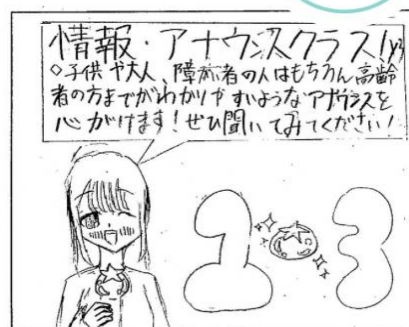 情報・アナウンスクラス
◇子供や大人、障がい者の人はもちろん高齢
者の方までがわかりやすいようなアナウンスを
心がけます！ぜひ聞いてみてください！
1 3